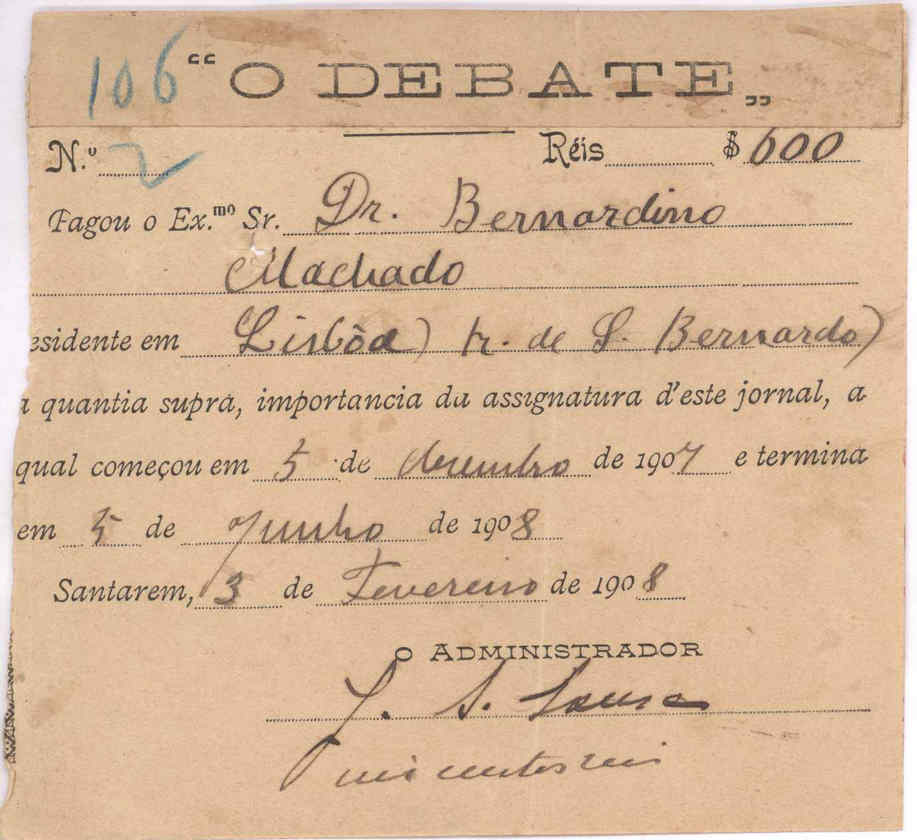 106 “ O DEBATE „
N.º 2 Réis $600
Pagou o Ex.mo Sr. Dr. Bernardino
Machado
esidente em Lisbôa) tr. de S. Bernardo)
a quantia supra, importancia da assignatura d'este jornal, a
qual começou em 5 de dezembro de 1907 e termina
em 5 de Junho de 1908
Santarem, 3 de Fevereiro de 1908
O ADMINISTRADOR
J. S. Sousa